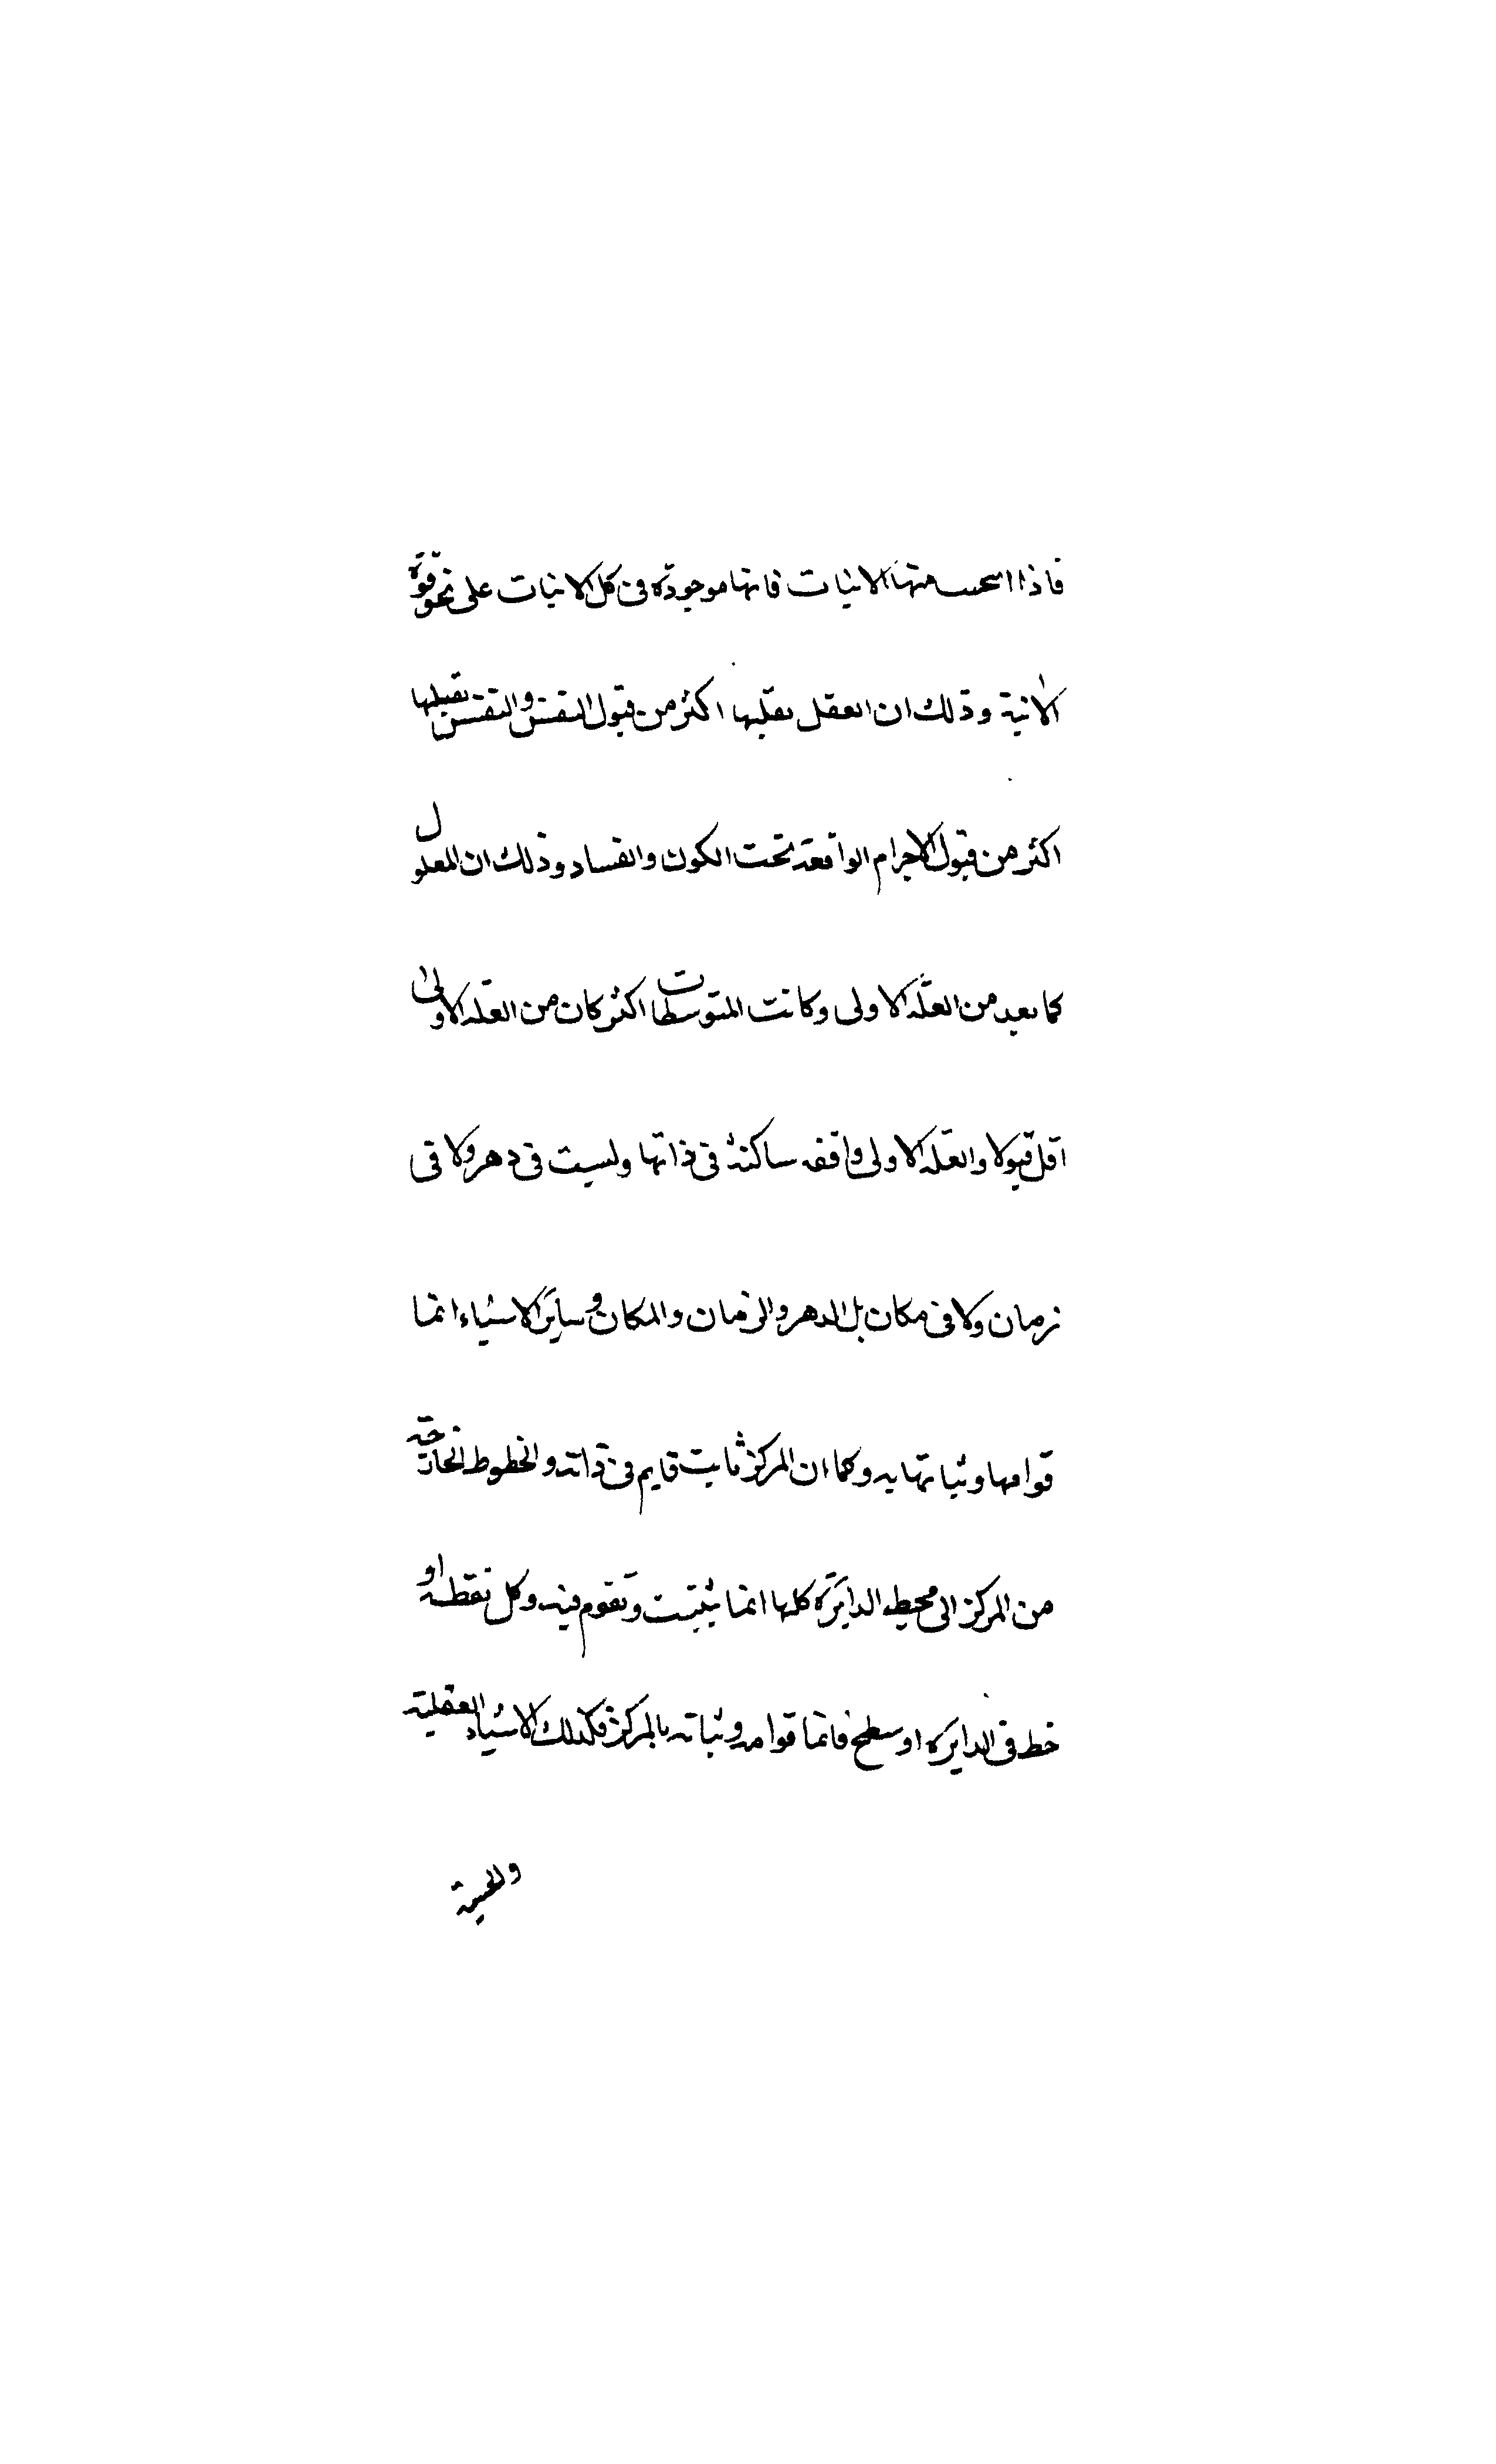 فاذا انبجست منها الانيات فانها موجودة فى كل الانيات على نحو قوة
الانية وذلك ان العقل يقبلها اكثر من قبول النفس والنفس تقبلها
اكثر من قبول الاجرام الواقعة تحت الكون والفساد وذلك ان المعلول
كلما بعد من العلة الاولى وكانت المتوسطات اكثر كان من العلة الاولى
اقل قبولا والعلة الاولى واقفه ساكنة فى ذاتها وليست فى دهر ولا فى
زمان ولا فى مكان بل الدهر والزمان والمكان وساير الاشياء انما
قوامها وثباتها به وكما ان المركز ثابت قايم فى ذاته والخطوط الخارجة
من المركز الى محيط الدايرة كلها انما يثبت وتقوم فيه وكل نقطة او
خط فى الدايرة او سطح فانما قوامه وثباته بالمركز فكذلك الاشياء العقلية
والحسية